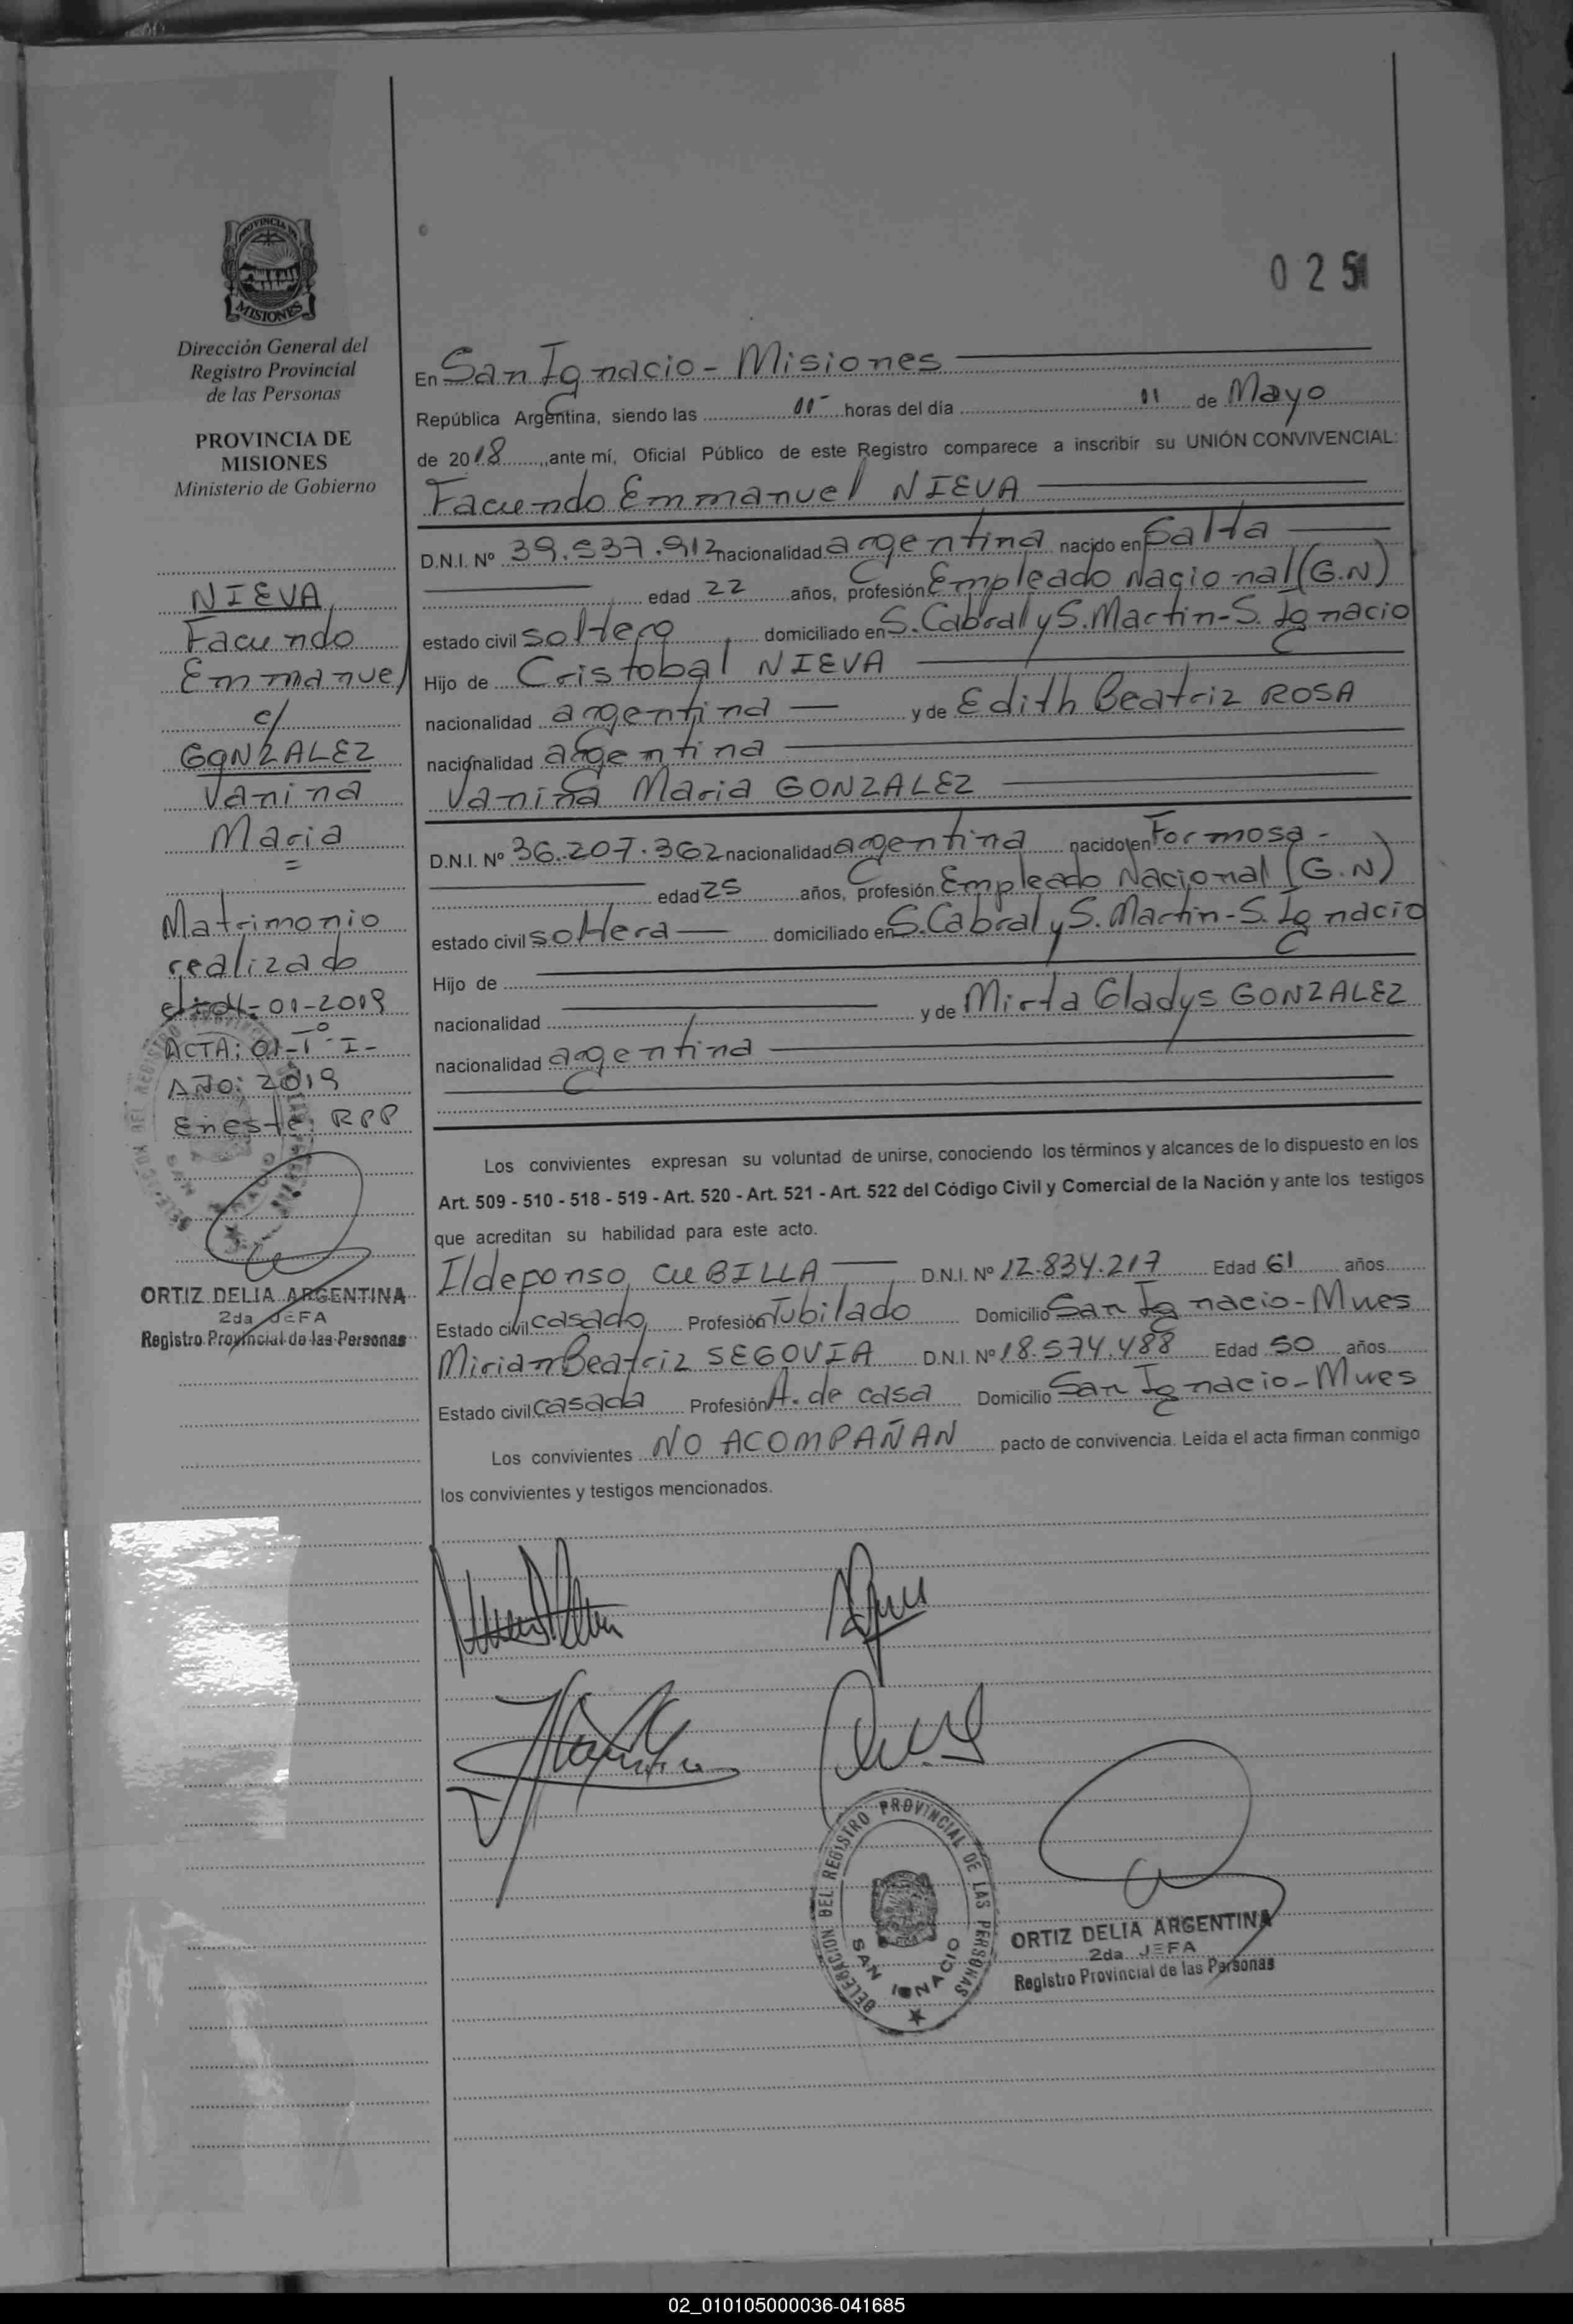 PROVINCIA DE
MISIONES
Dirección General del
Registro Provincial
de las Personas
PROVINCIA DE
MISIONES
Ministerio de Gobierno
NIEVA
Facundo
Emmanuel
c/
GONZALEZ
Vanina
Maria
=
Matrimonio
realizado
el: 04-01-2019
ACTA: 01-Tº-I-
AÑO: 2019
En este: RPP
ORTIZ DELIA ARGENTINA
2da JEFA
Registro Provincial de las Personas
0 2 5
En San Ignacio - Misiones
República Argentina, siendo las horas del día 11 de Mayo
de 2018 ,ante mí, Oficial Público de este Registro comparece a inscribir su UNIÓN CONVIVENCIAL:
Facundo Emmanuel NIEVA
D.N.I. Nº 39.537.912 nacionalidad argentina nacido en Salta
edad 22 años, profesión Empleado Nacional (G.N)
estado civil soltero domiciliado en S. Cabral y S. Martin-S. Ignacio
Hijo de Cristobal NIEVA
nacionalidad argentina y de Edith Beatriz ROSA
nacionalidad argentina
Vanina Maria GONZALEZ
D.N.I. Nº 36.207.362 nacionalidad argentina nacido en Formosa -
edad 25 años, profesión Empleado Nacional (G.N)
estado civil soltera domiciliado en S. Cabral y S. Martin-S. Ignacio
Hijo de
nacionalidad y de Mirta Gladys GONZALEZ
nacionalidad argentina
Los convivientes expresan su voluntad de unirse, conociendo los términos y alcances de lo dispuesto en los
Art. 509 - 510 - 518 - 519 - Art. 520 - Art. 521 - Art. 522 del Código Civil y Comercial de la Nación y ante los testigos
que acreditan su habilidad para este acto.
Ildeponso CUBILLA D.N.I. Nº 12.834.217 Edad 61 años
Estado civil casado Profesión Jubilado Domicilio San Ignacio - Mnes
Mirian Beatriz SEGOVIA D.N.I. Nº 18.574.488 Edad 50 años
Estado civil casada Profesión A. de casa Domicilio San Ignacio - Mnes
Los convivientes NO ACOMPAÑAN pacto de convivencia. Leída el acta firman conmigo
los convivientes y testigos mencionados.
DELEGACION DEL REGISTRO PROVINCIAL DE LAS PERSONAS
SAN IGNACIO
ORTIZ DELIA ARGENTINA
2da JEFA
Registro Provincial de las Personas
02_010105000036-041685